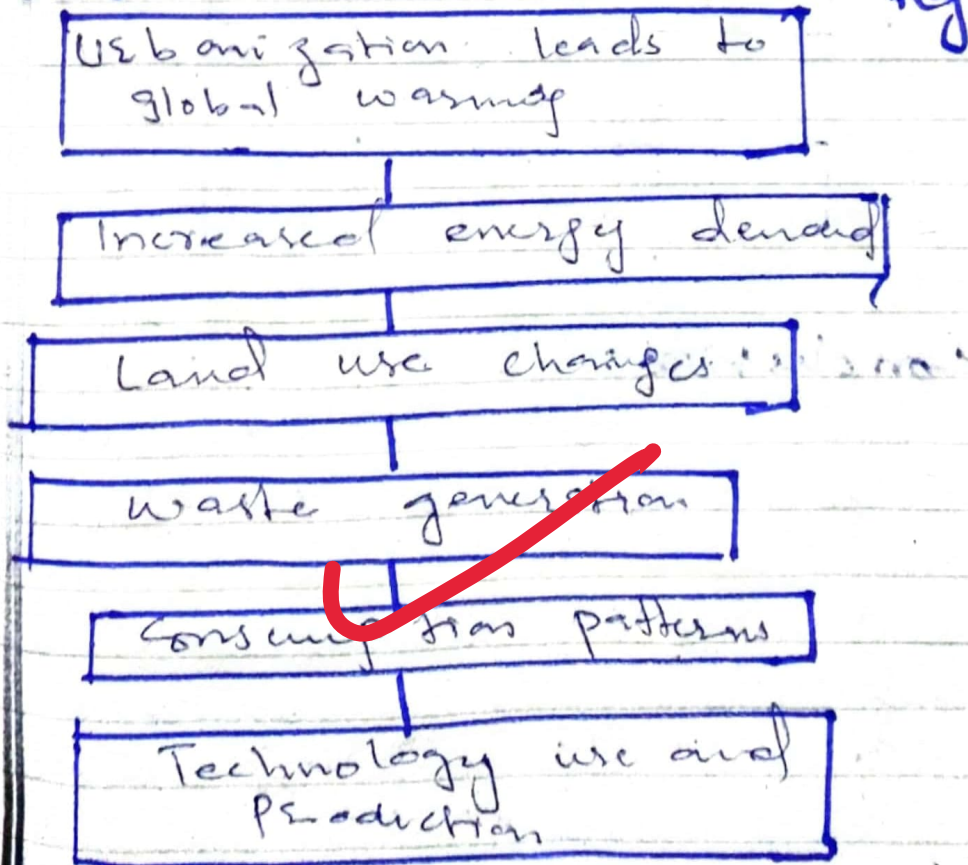 Urbanization leads to
global warming
Increased energy demand
Land use changes
waste generation
Consumption patterns
Technology use and
Production